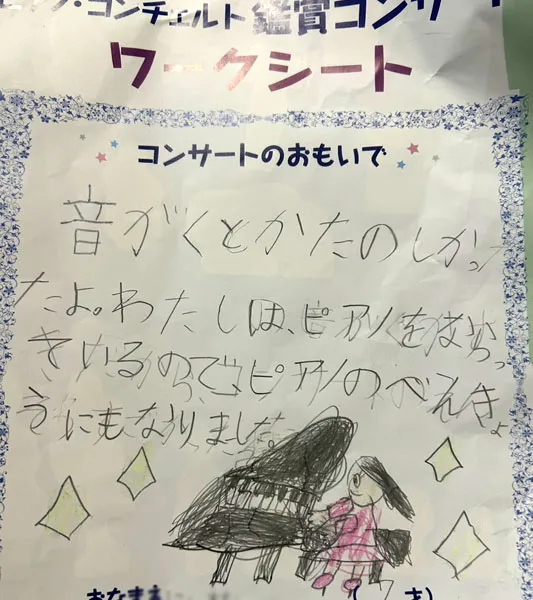 コンチェルト鑑賞コンサート
ワークシート
コンサートのおもいで
音がくとかたのしかっ
たよ。わたしは、ピアノを
きいるのでピアノのべえきょ
うにもなりました。
おなまえ
(7才)